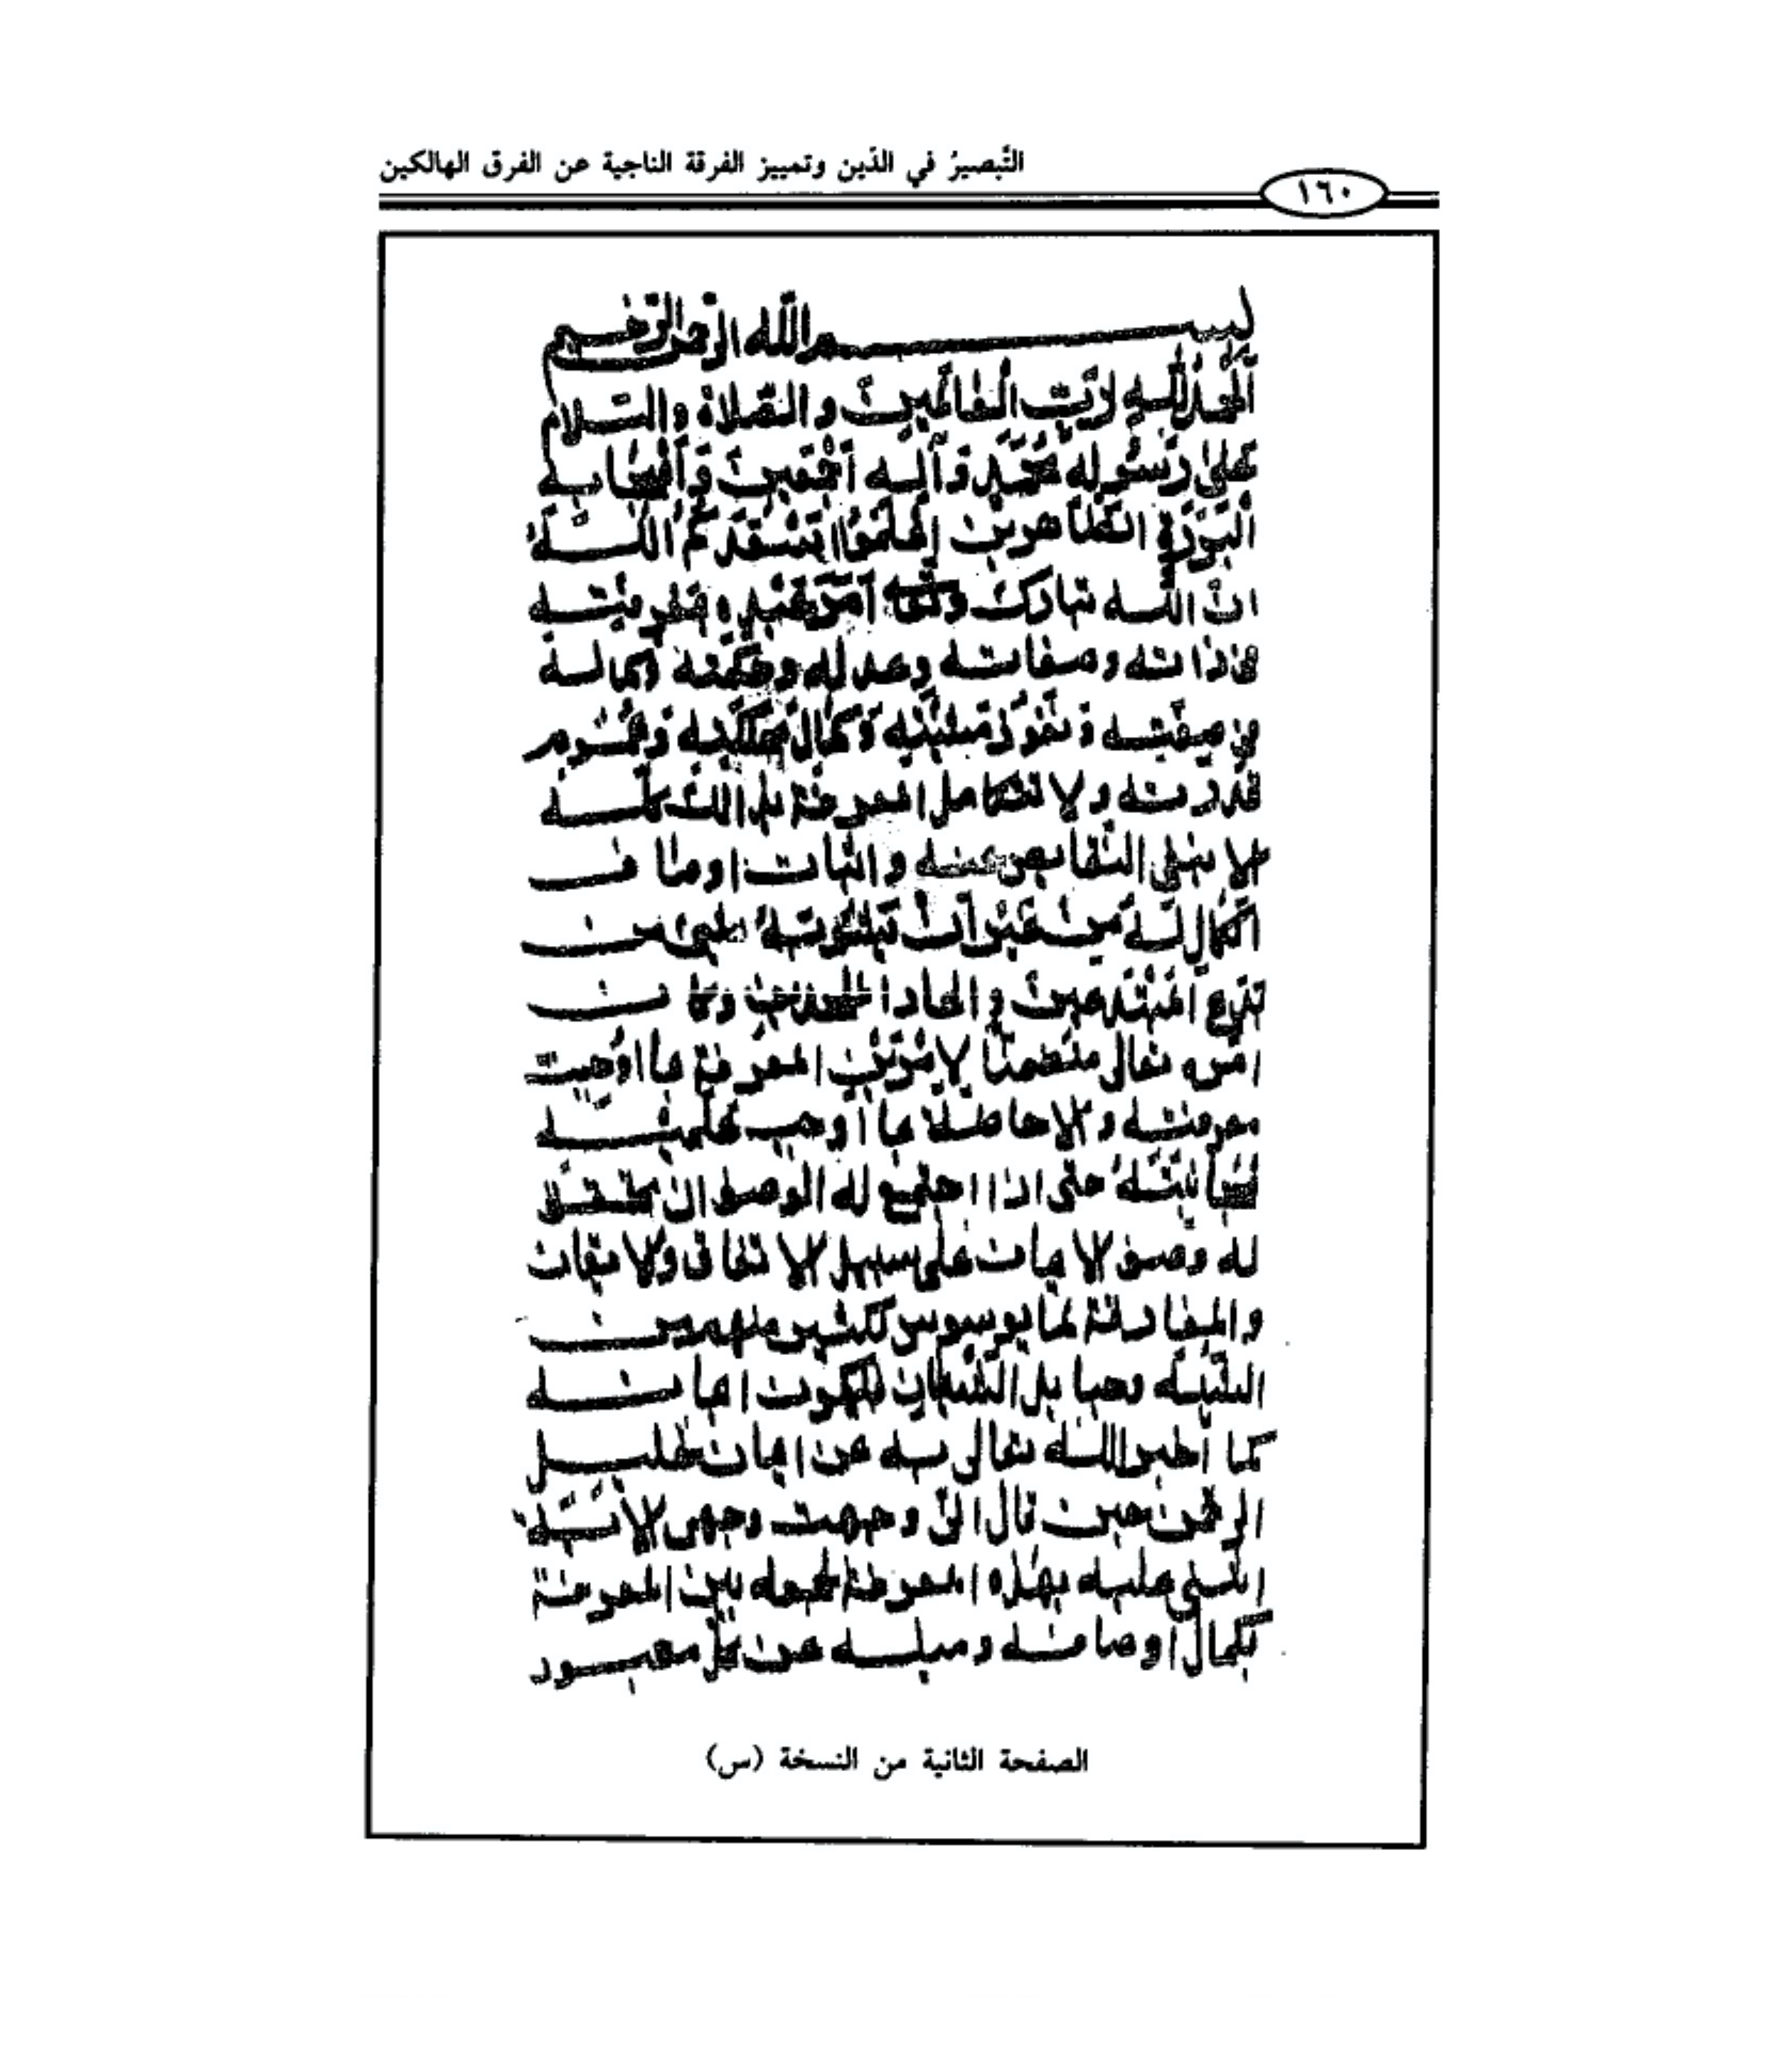 التَّبصيرُ في الدّين وتمييز الفرقة الناجية عن الفرق الهالكين
١٦٠
بسم الله الرحمن الرحيم
اَلْحَمْدُ لِلّٰهِ رَبِّ الْعَالَمِينَ والصَّلاةُ والسَّلام
عَلى رَسُولِه مُحَمَّدٍ وَآلِه أَجْمَعِينَ وَأَصْحَابِه
الْبَرَرَةِ الطَّاهرين اِعْلَمُوا اَسْعَدَكُمُ اللّٰهُ
انّ الله تبارك وتعالى أَمَرَ عَبْدِه بمعرفته
في ذاته وصفاته وعدله وحكمته وكماله
في صفته وَنُفُوذِ مَشِيَّتِه وَكَمَالِ مملكته وَعُمُوم
قدرته ولا تتكامل المعرفة بذالك كله
الا بنفي النقايص عنه واثبات اوصاف
الكمال لَهُ مِنْ غَيْرِ اَنْ شيئ من
بِدَعِ الْمُبْتَدِعِينَ والحاد الملحدين وكان
امره تعالى متضمنا لامرين المعرفة بما اوجبت
معرفته والاحاطة بما اوجب عليه
مُجَانَبَتَهُ حتى اذا اجتمع له الوصفان تحقق
له وصف الايمان على سبيل الاتفاق والايقان
والمفارقة لما يوسوس لكثير منهم من
الشُّبَه وحبايل الشَّيطان فيكون ايمانه
كما أخبر الله تعالى به عن ايمان خليل
الرحمن حين قال انى وجهت وجهى الآية
اثنى عليه بهذه المعرفة لجمعه بين المعرفة
بكمال اوصافه وميله عن كل معبود
الصفحة الثانية من النسخة (س)